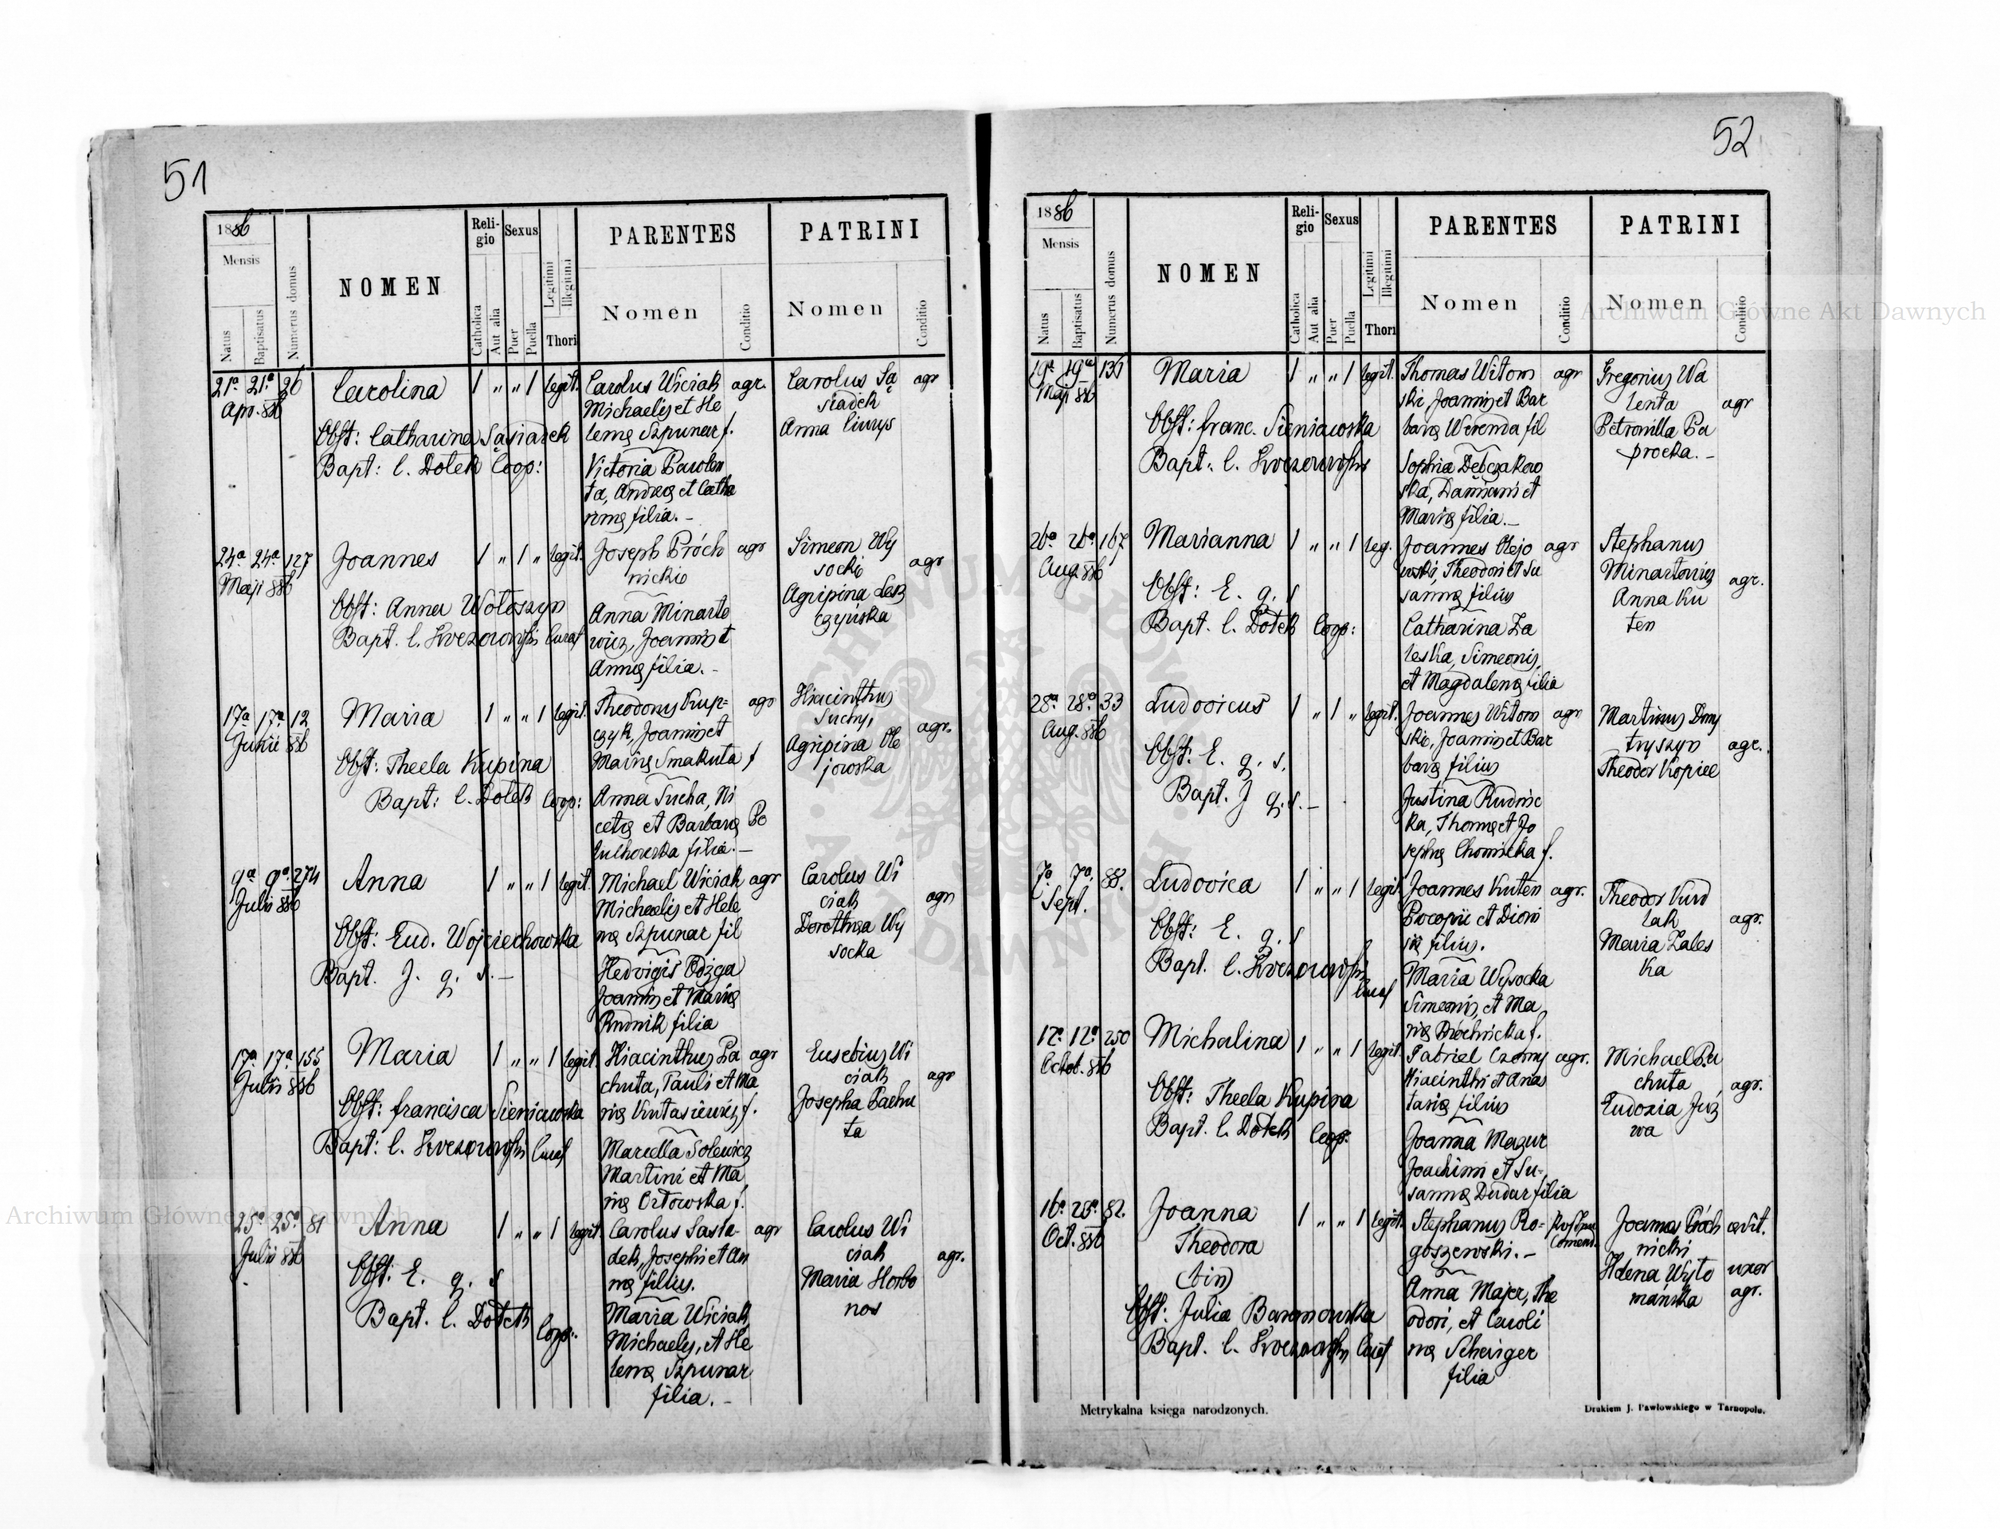 51
1886
Mensis
Natus
Baptisatus
Numerus domus
NOMEN
Reli-
gio
Catholica
Aut alia
Sexus
Puer
Puella
Legitimi
Illegitimi
Thori
PARENTES
Nomen
Conditio
PATRINI
Nomen
Conditio
21a 21a 26 Carolina 1 " " 1 legit. Carolus Wiciak agr. Carolus Są agr
Apr. 886 Michaelis et He siadek
Obst: Catharina Sąsiadek lenę Szpunar f. Anna
Bapt: C. Dołek Coop: Victoria
ta, Andreę et Catha
rinę filia. –
24a 24a 127 Joannes 1 " 1 " legit. Joseph Próch agr Simeon Wy agr
Maji 886 nicki socki
Obst: Anna Wołoszyn Anna Minarto Agripina Lesz
Bapt. C. Curat wicz, Joannis et czyńska
Annę filia. –
17a 17a 12 Maria 1 " " 1 legit. Theodorus Kup- agr Hiacinthus agr.
Junii 886 czyk, Joannis et Suchy,
Obst: Thecla Kupina Marię Smakuta f Agripina Ole
Bapt: C. Dołek Coop: Anna Sucha, Ni jowska
cetę et Barbarę
filia. –
9a 9a 274 Anna 1 " " 1 legit. Michael Wiciak agr Carolus Wi agr
Julii 886 Michaelis et Hele ciak
Obst: Eud. Wojciechowska nę Szpunar fil Dorothea Wy
Bapt. J. q. s. – Hedvigis socka
Joannis et Marię
Rudnik filia
17a 17a 155 Maria 1 " " 1 legit. Hiacinthus Pa agr Eusebius Wi agr
Julii 886 chuta, Pauli et Ma ciak
Obst: Francisca Sieniawska rię f. Josepha Pachu
Bapt: C. Curat Marcella ta
Martini et Ma
rię Orłowska f.
25a 25a 81 Anna 1 " " 1 legit. Carolus Sąsia- agr Carolus Wi agr.
Julii 886 dek, Josephi et An ciak
Obst: E. q. s nę filius. Maria Horbo
Bapt. C. Dołek Coop: Maria Wiciak nos
Michaelis, et He
lenę Szpunar
filia. –
52
1886
Mensis
Natus
Baptisatus
Numerus domus
NOMEN
Reli-
gio
Catholica
Aut alia
Sexus
Puer
Puella
Legitimi
Illegitimi
Thori
PARENTES
Nomen
Conditio
PATRINI
Nomen
Conditio
19a 19a Maria 1 " " 1 legit. Thomas Witom agr Gregorius Wa agr
Maji 886 ski Joannis et Bar lenta
Obst: Franc. Sieniawska barę fil Petronilla Pa
Bapt: C. Sophia procka. –
ska, Damiani et
Marię filia. –
26a 26a 167 Marianna 1 " " 1 leg. Joannes Olejo agr Stephanus agr.
Aug. 886 wski, Theodori et Su Minartowicz
Obst: E. q. s sannę filius Anna Ku
Bapt. C. Dołek Coop: Catharina Za ten
leska, Simeonis,
et Magdalenę filia
28a 28a 33 Ludovicus 1 " 1 " legit. Joannes Witom agr Martinus Dmy agr.
Aug. 886 ski, Joannis et Bar tryszyn
Obst: E. q. s. barę filius Theodor Kopiec
Bapt. J q. s. – Justina Rudnic
ka, Thomę et Jo
sephę f.
7a 7a 88. Ludovica 1 " " 1 legit Joannes Kuten agr. Theodor Kurd agr.
Sept. Procopii et Dioni lak
Obst: E. q. s się filius. Maria Zales
Bapt. C. Curat Maria Wysocka ka
Simeonis, et Ma
rię Próchnicka f.
12a 12a 250 Michalina 1 " " 1 legit. Gabriel Czorny agr. Michael Pa agr.
Octob. 886 Hiacinthi et Anas chuta
Obst: Thecla Kupina tasię filius Eudoxia Józ
Bapt. C. Dołek Coop. Joanna Mazur wa
Joachimi et Su-
sannę Dudar filia
16a 26a 82. Joanna 1 " " 1 legit. Stephanus Ro- Joannes Próch
Oct. 886 Theodora goszewski. – nicki
(bin) Anna Majer, The Helena Wyto uxor
Obst: Julia Baranowska odori, et Caroli mańska agr.
Bapt. C. Curat nę
filia
Metrykalna księga narodzonych.
Drukiem J. Pawłowskiego w Tarnopolu.
Archiwum Główne Akt Dawnych
Archiwum Główne Akt Dawnych
ARCHIWUM GŁÓWNE AKT DAWNYCH